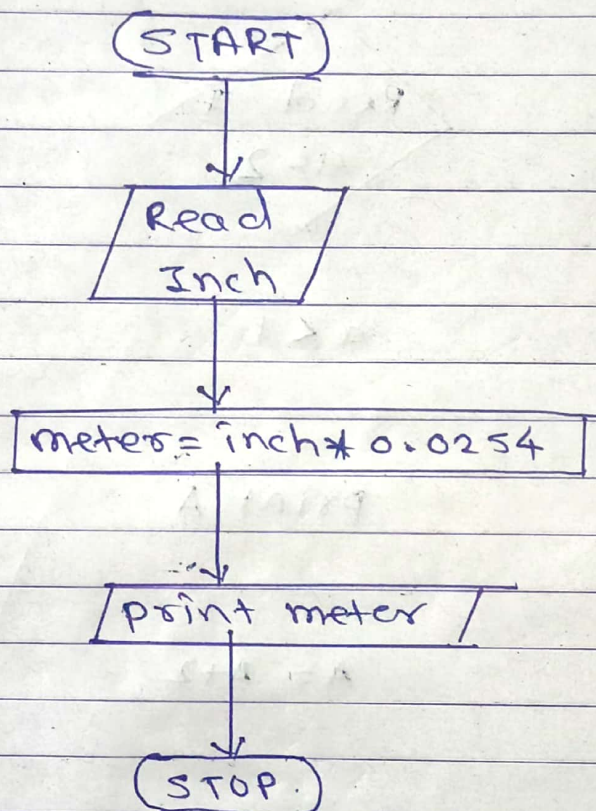 START
Read
Inch
meter = inch * 0.0254
print meter
STOP.